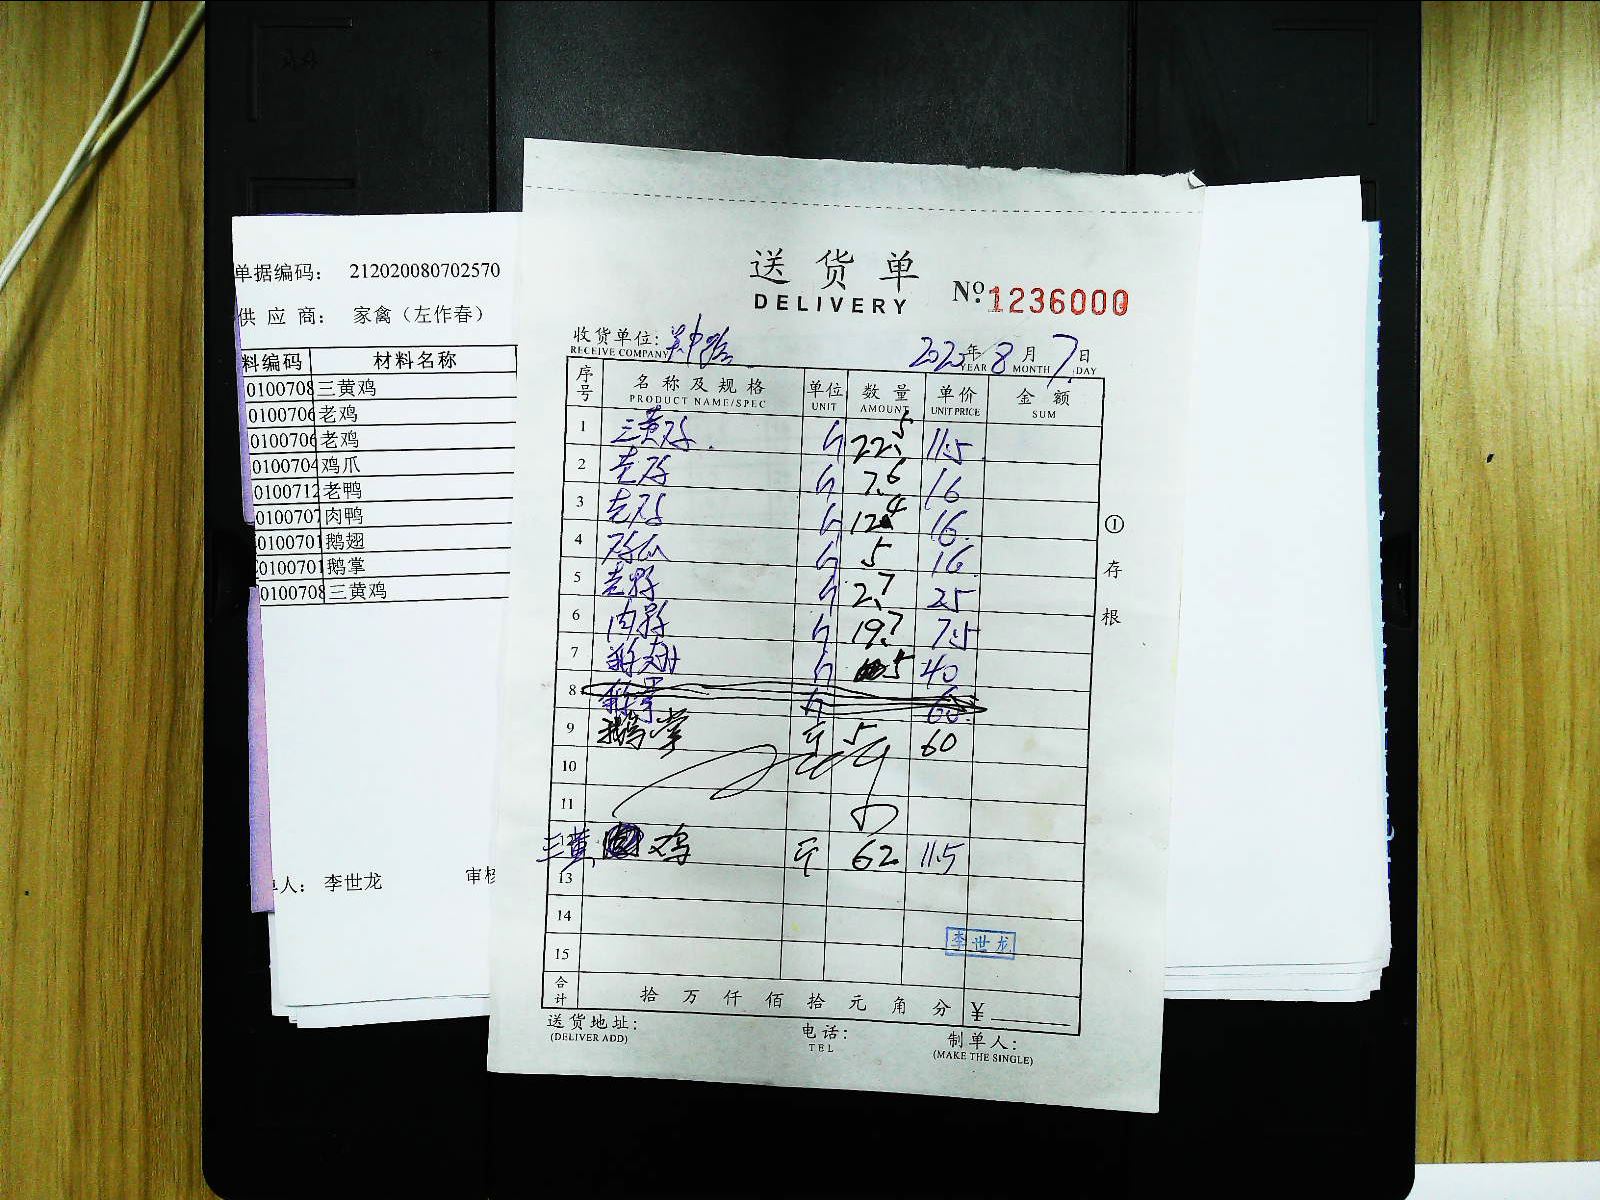 单据编码： 212020080702570
供 应 商： 家禽（左作春）
料编码 材料名称
0100708 三黄鸡
0100706 老鸡
0100706 老鸡
0100704 鸡爪
0100712 老鸭
0100707 肉鸭
0100701 鹅翅
0100701 鹅掌
0100708 三黄鸡
单人： 李世龙 审核
送 货 单
DELIVERY
Nº.1236000
收货单位：吴中路 2020年8月7日
RECEIVE COMPANY YEAR MONTH DAY
序号 名称及规格 单位 数量 单价 金额
PRODUCT NAME/SPEC UNIT AMOUNT UNIT PRICE SUM
1 三黄鸡 斤 22.5 11.5
2 老鸡 斤 7.6 16
3 老鸡 斤 12.4 16
4 鸡爪 斤 5 16
5 老鸭 斤 2.7 25
6 肉鸭 斤 19.7 7.5
7 鹅翅 斤 5 40
8 鹅掌 斤 60
9 鹅掌 斤 5 60
10
11
三黄 鸡 斤 62 11.5
13
14
15
李世龙
合计 拾 万 仟 佰 拾 元 角 分 ¥
送货地址： 电话： 制单人：
(DELIVER ADD) TEL (MAKE THE SINGLE)
① 存根